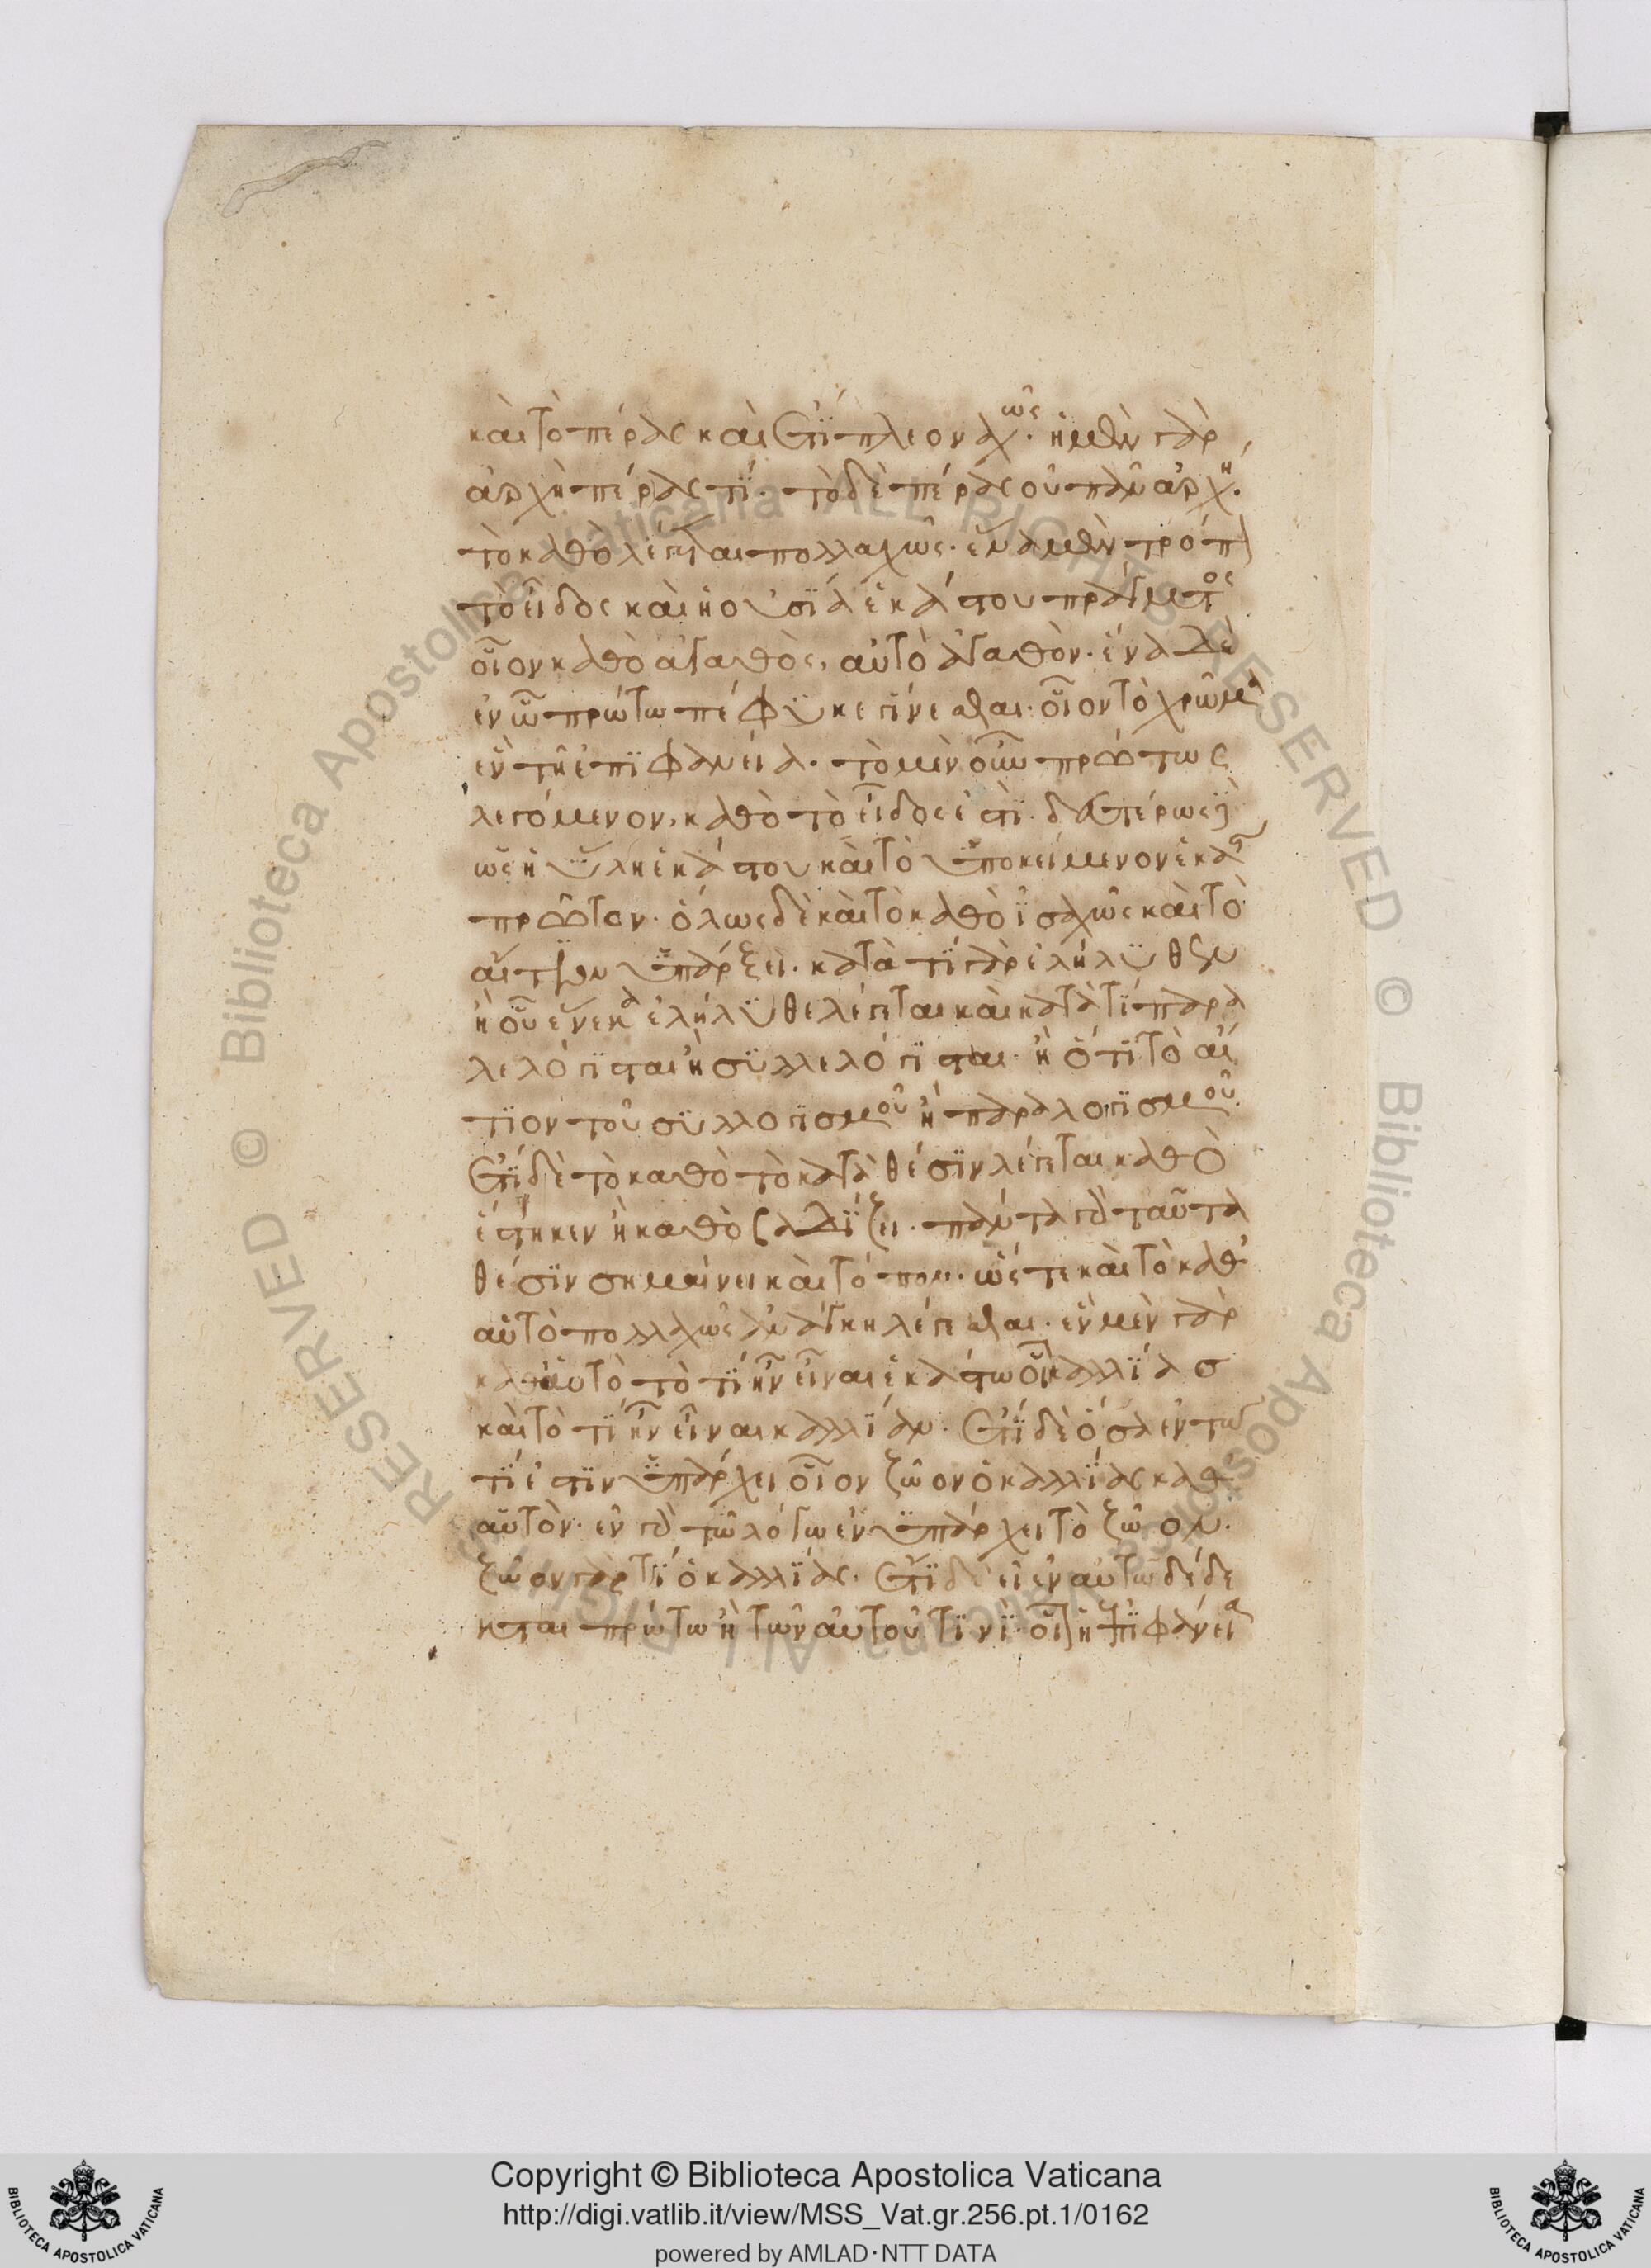 καὶ τὸ πέρας καὶ ἔτι πλεοναχῶς· ἡ μὲν γὰρ
ἀρχὴ πέρας τι· τὸ δὲ πέρας οὐ πᾶν ἀρχή·
τὸ καθὸ λέγεται πολλαχῶς· ἕνα μὲν τρόπ
τὸ εἶδος καὶ ἡ οὐσία ἑκάστου πράγματος
οἷον καθὸ ἀγαθὸς, αὐτὸ ἀγαθὸν· ἕνα δὲ
ἐν ᾧ πρώτω πέφυκε γίνεσθαι· οἷον τὸ χρῶμα
ἐν τῆ ἐπιφανεία· τὸ μὲν οὖν πρώτως
λεγόμενον, καθὸ τὸ εἶδος ἐστι· δευτέρως
ὡς ἡ ὕλη ἑκάστου καὶ τὸ ὑποκείμενον ἑκάστ
πρῶτον· ὅλως δὲ καὶ τὸ καθὸ ἰσαχῶς καὶ τὸ
αἴτιον ὑπάρξει· κατὰ τί γὰρ ἐλήλυθεν
ἢ οὗ ἕνεκα ἐλήλυθε λέγεται καὶ κατὰ τί παρα
λελόγισται ἢ συλλελόγισται· ἢ ὅτι τὸ αἴ
τιον τοῦ συλλογισμοῦ ἢ παραλογισμοῦ·
ἔτι δὲ τὸ καθὸ τὸ κατὰ θέσιν λέγεται καθὸ
ἕστηκεν ἢ καθὸ βαδίζει· πάντα γὰρ ταῦτα
θέσιν σημαίνει καὶ τόπον· ὥστε καὶ τὸ καθ'
αὑτὸ πολλαχῶς ἀνάγκη λέγεσθαι· ἓν μὲν γὰρ
καθαὑτὸ τὸ τί ἦν εἶναι ἑκάστω οἷον καλλίας
καὶ τὸ τί ἦν εἶναι καλλίαν· ἔτι δὲ ὅσα ἐν τῶ
τί ἐστιν ὑπάρχει οἷον ζῶον ὁ καλλίας καθ
αὑτὸν· ἐν γὰρ τῶ λόγω ἐνυπάρχει τὸ ζῶον·
ζῶον γάρ τι ὁ καλλίας· ἔτι δὲ εἰ ἐν αὑτῶ δέδε
κται πρώτω ἢ τῶν αὐτοῦ τινὶ· οἷον ἡ ἐπιφάνεια
Copyright © Biblioteca Apostolica Vaticana
http://digi.vatlib.it/view/MSS_Vat.gr.256.pt.1/0162
powered by AMLAD·NTT DATA